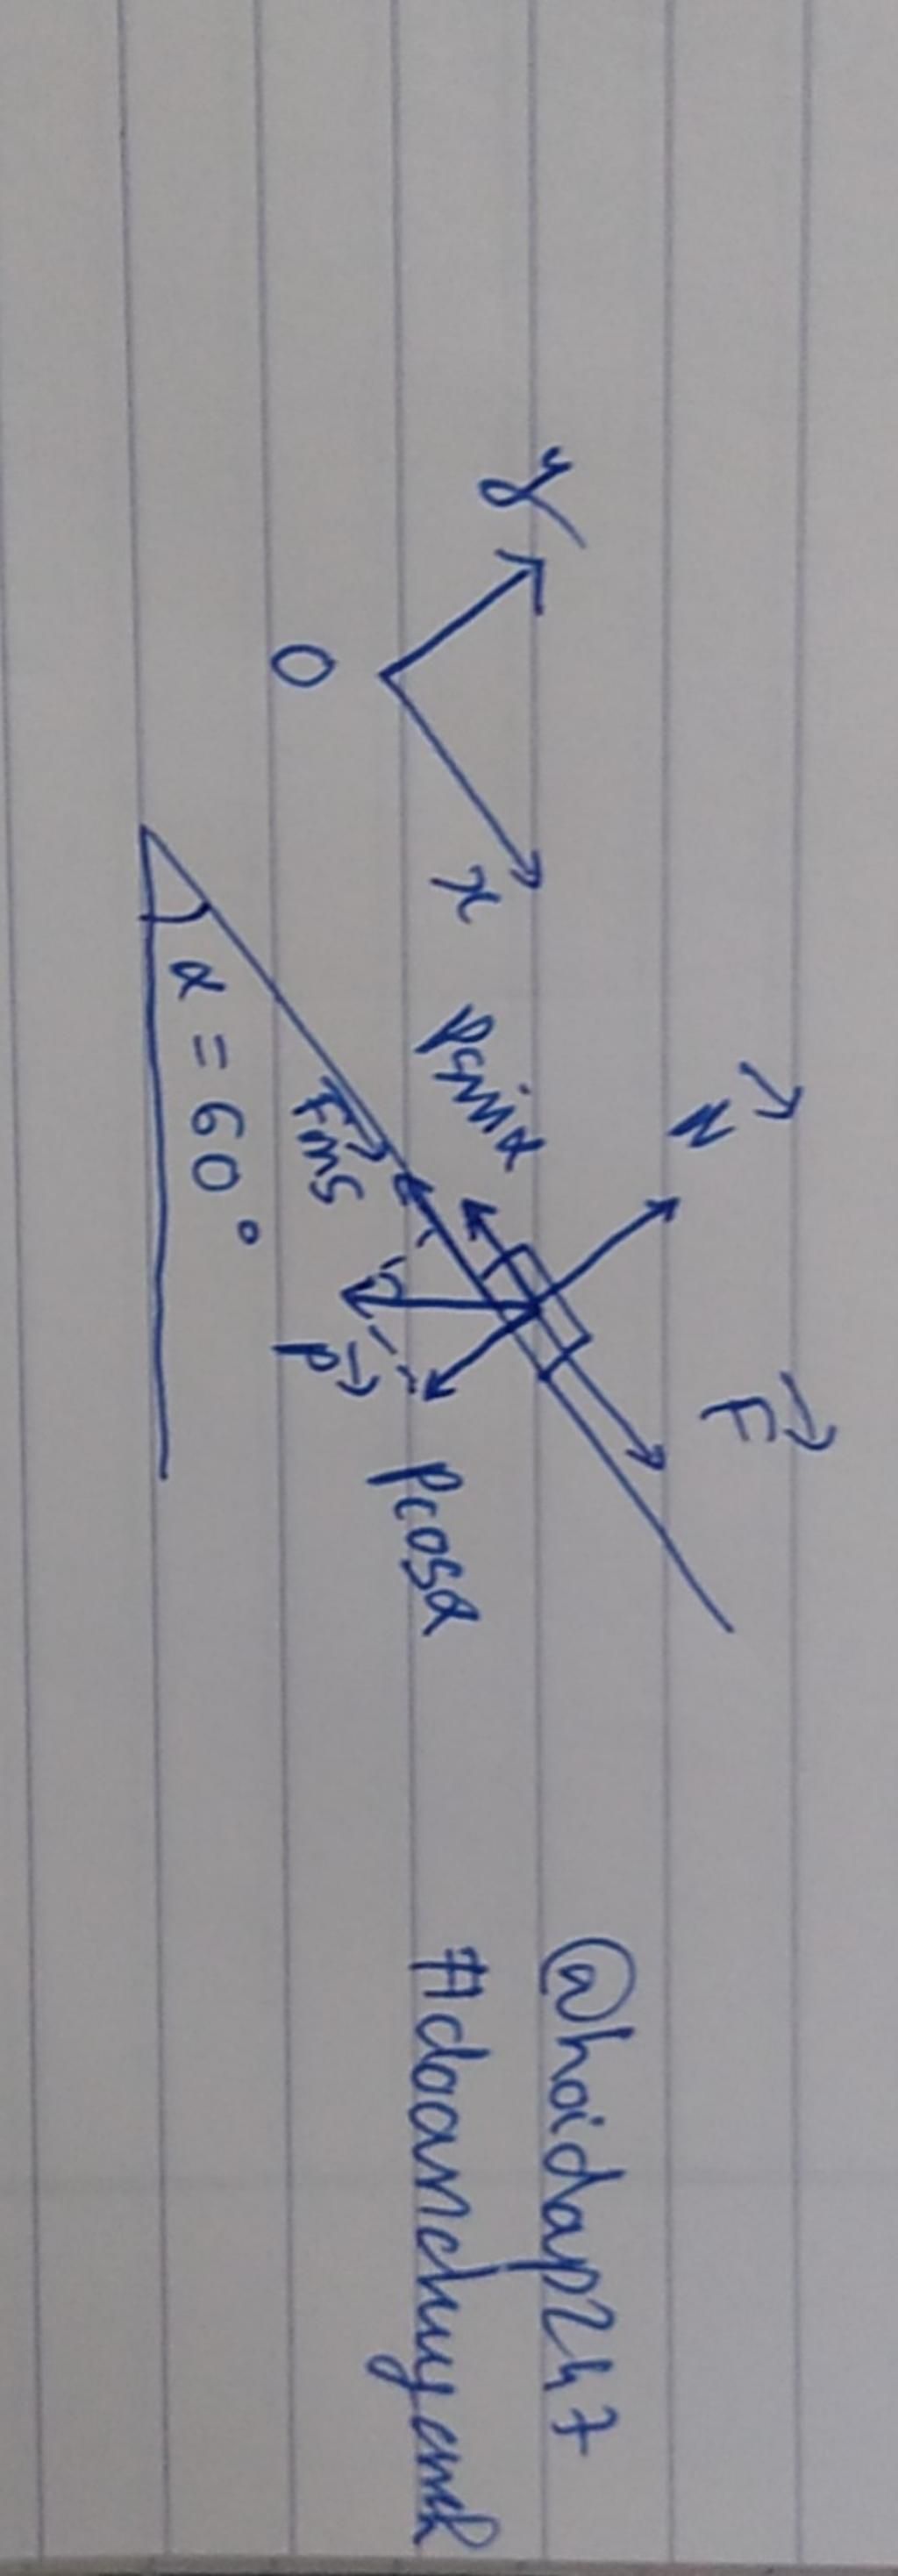 y
x
O
N
F
Psinα
Fms
P
Pcosα
α = 60°
@hoidap247
#doanchuyench